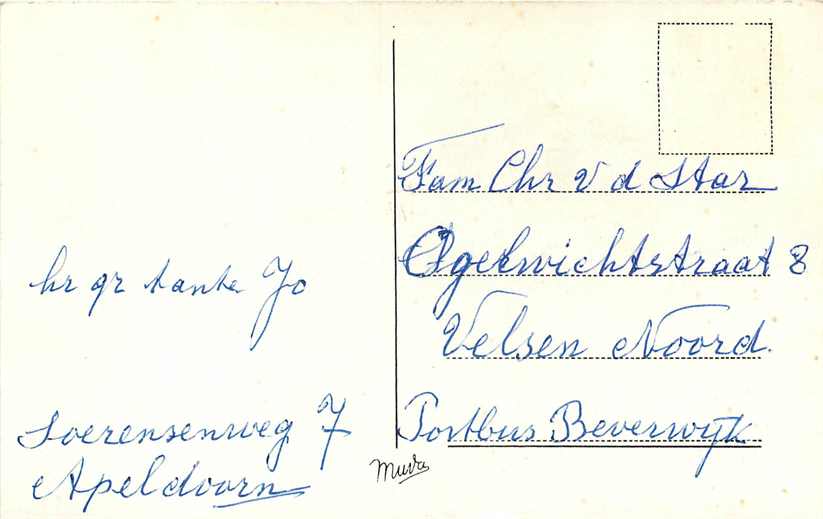 hr gr tante Jo
Soerensenweg 7
Apeldoorn
Fam Chr v d Star
straat 8
Velsen Noord.
Postbus Beverwijk